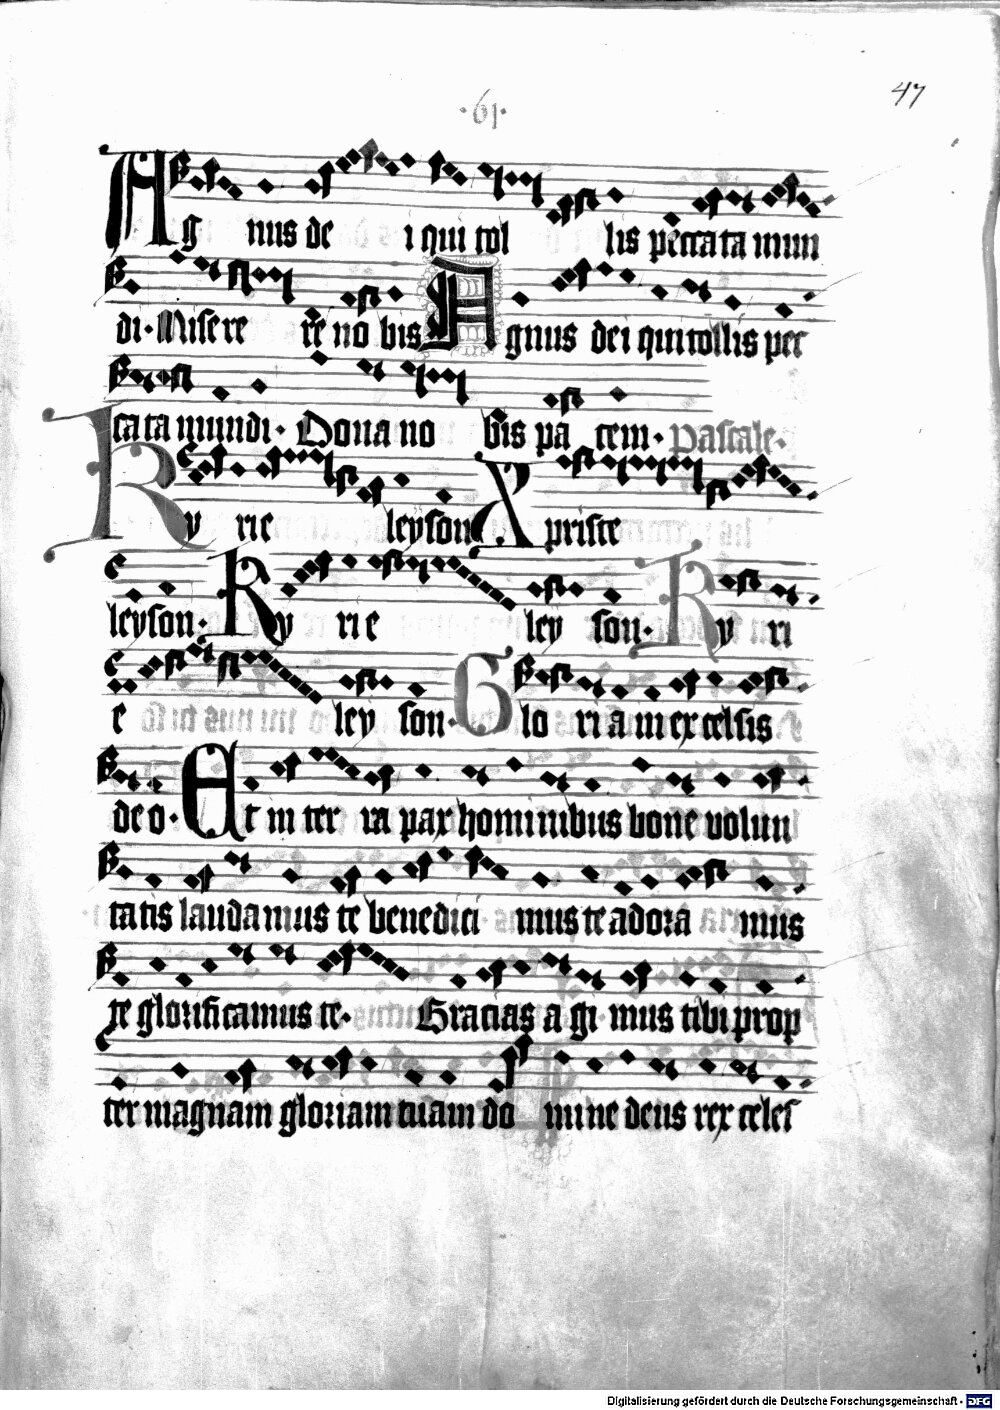 47
·61·
Ag nus de i qui tol lis peccata mun
di· Misere re no bis Agnus dei qui tollis pec
cata mundi· Dona no bis pa cem· Pascale·
Ky rie leyson Xpriste
leyson· Ky rie ley son· Ky ri
e ley son· Glo ri a in excelsis
deo· Et in ter ra pax hominibus bone volun
tatis laudamus te benedici mus te adora mus
te glorificamus te· Gracias a gi mus tibi prop
ter magnam gloriam tuam do mine deus rex celes
Digitalisierung gefördert durch die Deutsche Forschungsgemeinschaft - DFG